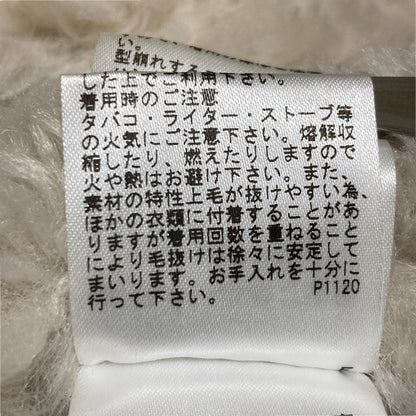 い。
型崩れする
した上でご利用下さい。
着用時のご注意
タバコ・ライター・ストーブ等
の火気にご注意下さい。熔解収
縮したり燃えたりしますので、
火や熱はお避け下さい。また、
素材の特性上毛が抜けやすい為、
ほかの衣類に付着することがあ
りますが着用回数を重ねること
により毛抜けは徐々に安定して
まいります。お手入れを十分に
行って下さい。
P1120